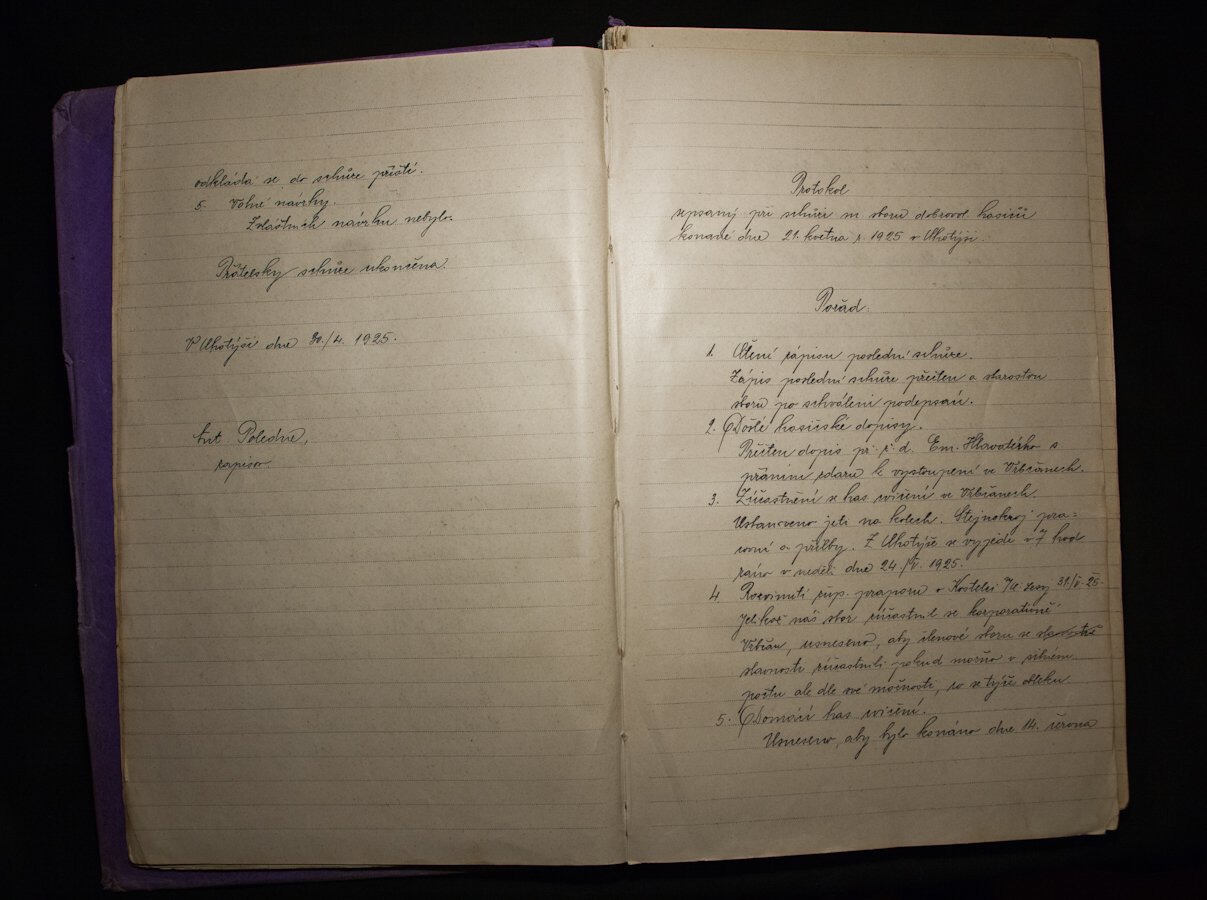 odkládá se do schůze příští.
5. Volné návrhy.
Zvláštních návrhu nebylo.
Přátelsky schůze ukončena.
V Uhotýši dne 30./4. 1925.
Ant. Poledne,
zapisov.
Protokol
sepsaný při schůzi m sboru dobrovol. hasičů
konané dne 21. května r. 1925 v Uhotýši.
Pořad:
1. Čtení zápisu poslední schůze.
Zápis poslední schůze přečten a starostou
sboru po schválení podepsán.
2. Došlé hasičské dopisy.
Přečten dopis př. Em. s
přáním zdaru k vystoupení ve Vrbčanech.
3. Zúčastnění se has. cvičení ve Vrbčanech.
Ustanoveno jeti na kolech. Stejnokroj pra=
covní a přilby. Z Uhotýše se vyjede v 7 hod
ráno v neděli dne 24./V. 1925.
4. Rozvinutí žup. praporu v Kostelci n/č. lesy 31./V. 25.
Jelikož náš sbor zúčastnil se korporativně
Vrbčan, usneseno, aby členové sboru se
slavnosti zúčastnili pokud možno v silném
počtu ale dle své možnosti, co se týče obleku.
5. Domácí has. cvičení.
Usneseno, aby bylo konáno dne 14. června